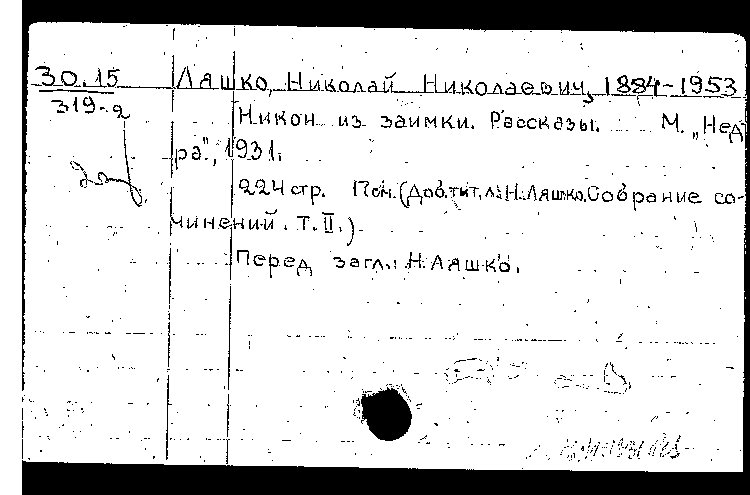 30.15 Ляшко, Николай Николаевич, 1884-1953
319-2
Никон из заимки. Рассказы. М. „Нед-
ра", 1931.
224 стр. 17 см. (Доб.тит.л: Н.Ляшко. Собрание со-
чинений. Т. II.)
Перед загл.: Н. Ляшко.